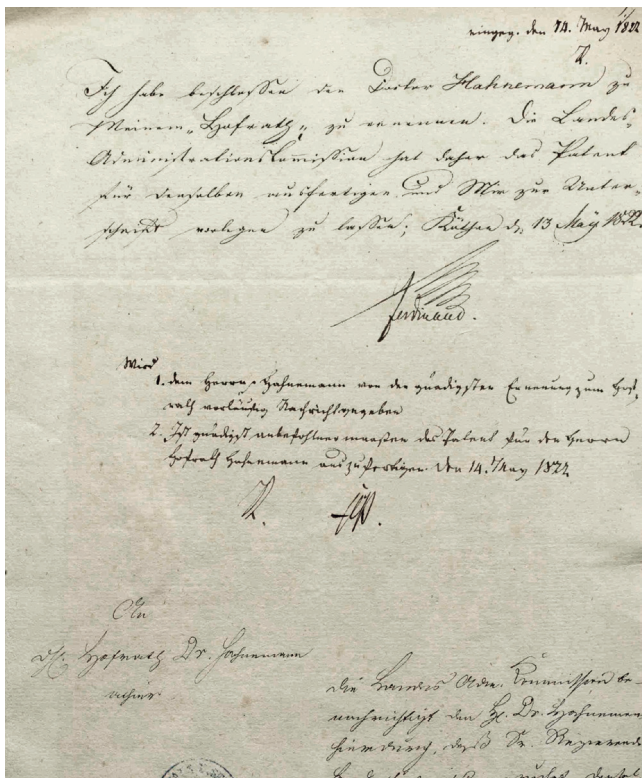 eingeg. den 14. May 1822
Ich habe beschlossen den Doctor Hahnemann zu
Meinem „Hofrath„ zu ernennen. Die Landes-
Administrationskomission hat daher das Patent
für denselben ausfertigen und Mir zur Unter-
schrift vorlegen zu lassen; Köthen d. 13 May 1822.
Ferdinand.
Wird
1. dem Herrn Hahnemann von der gnädigsten Ernennung zum Hof-
rath vorläufig Nachricht gegeben
2. Ist gnädigst anbefohlnermaasen das Patent für den Herrn
Hofrath Hahnemann auszufertigen. den 14. May 1822
An
Hofrath Dr. Hahnemann
die Landes Adm. Commission be-
nachrichtigt den H. Dr. Hahnemann
hierdurch, daß Sr. Regierende